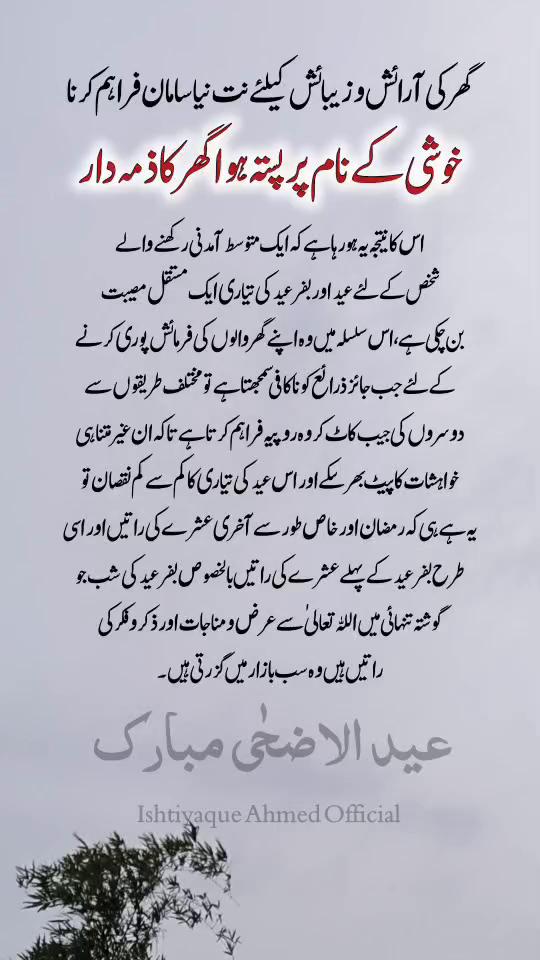 گھر کی آرائش و زیبائش کیلئے نت نیا سامان فراہم کرنا
خوشی کے نام پر پستہ ہوا گھر کا ذمہ دار
اس کا نتیجہ یہ ہو رہا ہے کہ ایک متوسط آمدنی رکھنے والے
شخص کے لئے عید اور بقرعید کی تیاری ایک مستقل مصیبت
بن چکی ہے، اس سلسلہ میں وہ اپنے گھر والوں کی فرمائش پوری کرنے
کے لئے جب جائز ذرائع کو ناکافی سمجھتا ہے تو مختلف طریقوں سے
دوسروں کی جیب کاٹ کر وہ روپیہ فراہم کرتا ہے تاکہ ان غیر متناہی
خواہشات کا پیٹ بھر سکے اور اس عید کی تیاری کا کم سے کم نقصان تو
یہ ہے ہی کہ رمضان اور خاص طور سے آخری عشرے کی راتیں اور اسی
طرح بقرعید کے پہلے عشرے کی راتیں بالخصوص بقرعید کی شب جو
گوشئہ تنہائی میں اللہ تعالیٰ سے عرض و مناجات اور ذکر و فکر کی
راتیں ہیں وہ سب بازار میں گزرتی ہیں۔
عید الاضحٰی مبارک
Ishtiyaque Ahmed Official